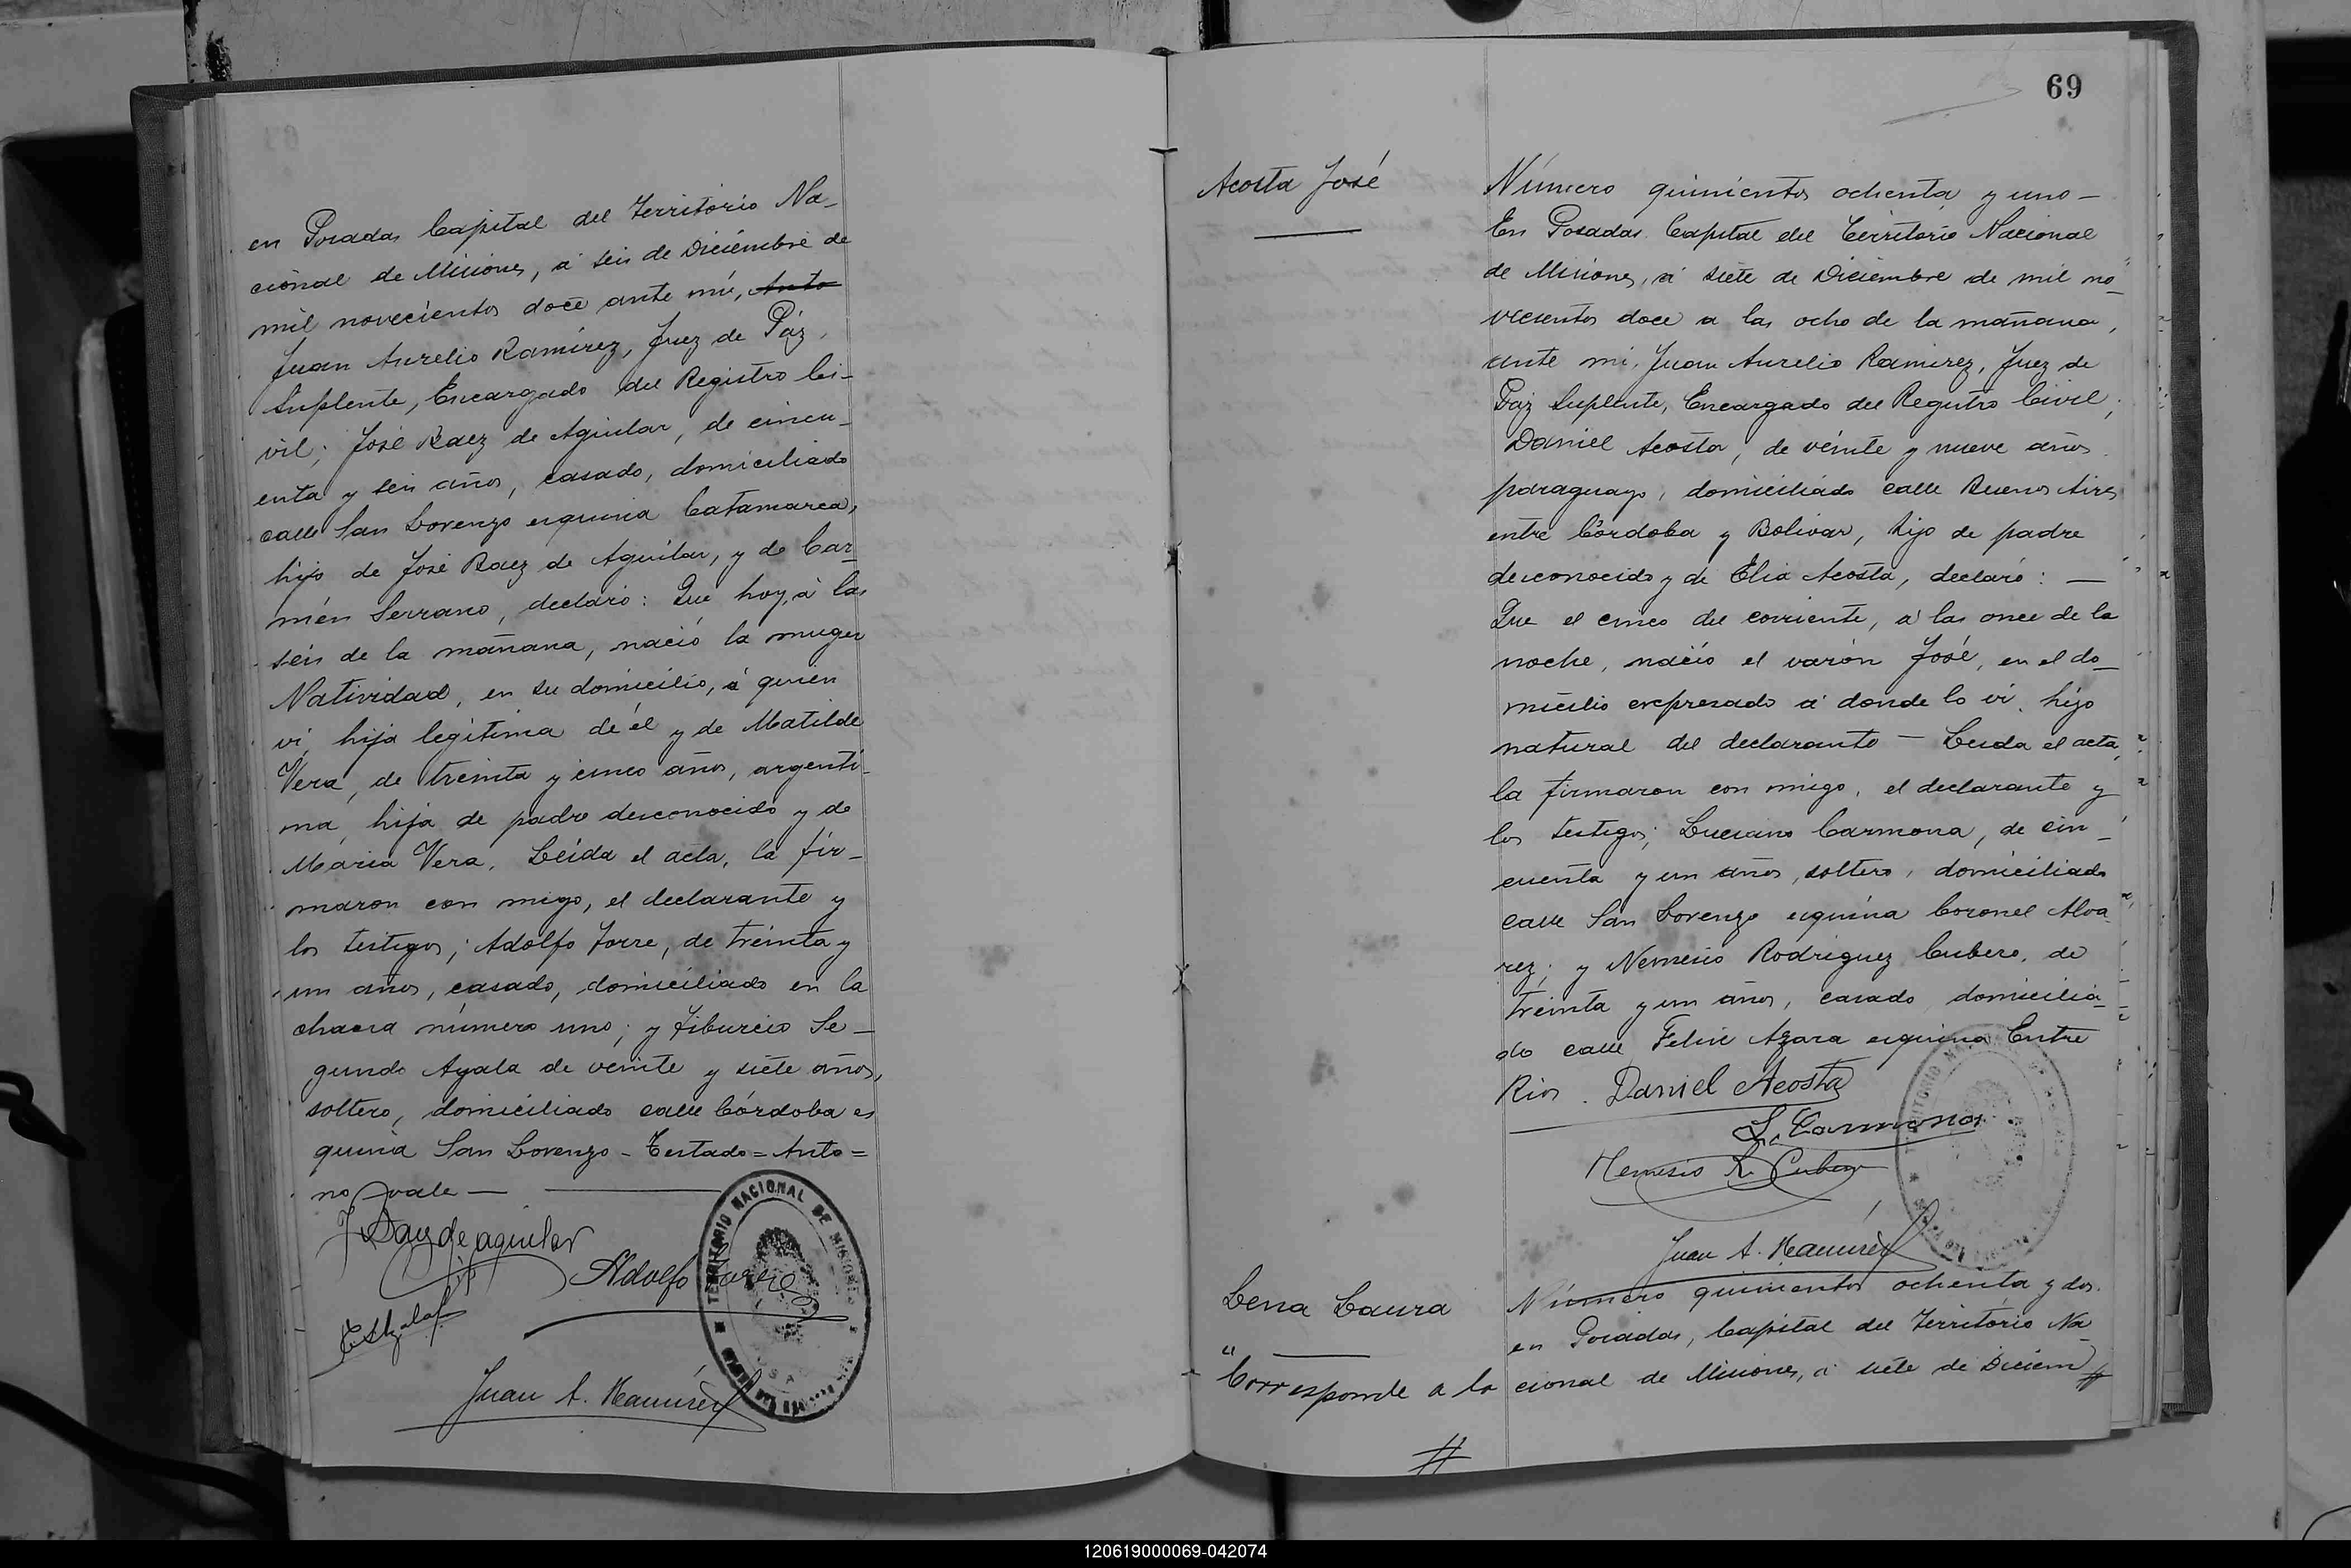 en Posadas Capital del Territorio Na-
cional de Misiones, á seis de Diciembre de
mil novecientos doce ante mí, Anto
Juan Aurelio Ramírez, Juez de Páz,
Suplente, Encargado del Registro Ci-
vil; José Baez de Aguilar, de cincu-
enta y seis años, casado, domiciliado
calle San Lorenzo esquina Catamarca,
hijo de José Baez de Aguilar, y de Car-
mén Serrano, declaró: Que hoy, á las
seis de la mañana, nació la muger
Natividad, en su domicilio, á quien
ví, hija legítima de él y de Matilde
Vera, de treinta y cinco años, argenti-
na, hija de padre desconocido y de
María Vera. Leída el acta, la fir-
maron con migo, el declarante y
los testigos; Adolfo Torre, de treinta y
un años, casado, domiciliado en la
chacra número uno; y Tiburcio Se-
gundo Ayala de veinte y siete años,
soltero, domiciliado calle Córdoba es
quina San Lorenzo - Testado = Anto =
no vale —
J Baez de aguilar
Adolfo Torre
Juan A. Ramírez
TERRITORIO NACIONAL DE MISIONES
69
Acosta José
Número quinientos ochenta y uno -
En Posadas Capital del Territorio Nacional
de Misiones, á siete de Diciembre de mil no-
vecientos doce a las ocho de la mañana,
ante mi, Juan Aurelio Ramirez, Juez de
Paz Suplente, Encargado del Registro Civil,
Daniel Acosta, de veinte y nueve años
paraguayo, domiciliado calle Buenos Aires
entre Córdoba y Bolivar, hijo de padre
desconocido y de Elia Acosta, declaró: —
Que el cinco del corriente, á las once de la
noche, nació el varón José, en el do-
micilio expresado á donde lo ví, hijo
natural del declarante - Leida el acta,
la firmaron con migo, el declarante y
los testigos; Luciano Carmona, de cin-
cuenta y un años, soltero, domiciliado
calle San Lorenzo esquina Coronel Alva
rez; y Nemesio Rodriguez Cubero, de
treinta y un años, casado, domicilia-
do calle Felix Azara esquina Entre
Rios. Daniel Acosta
L. Carmona
Nemesio R. Cubero
Juan A. Ramírez
Lena Laura
Número quinientos ochenta y dos.
en Posadas, Capital del Territorio Na-
"Corresponde a la
cional de Misiones, á siete de Diciem
#
120619000069-042074